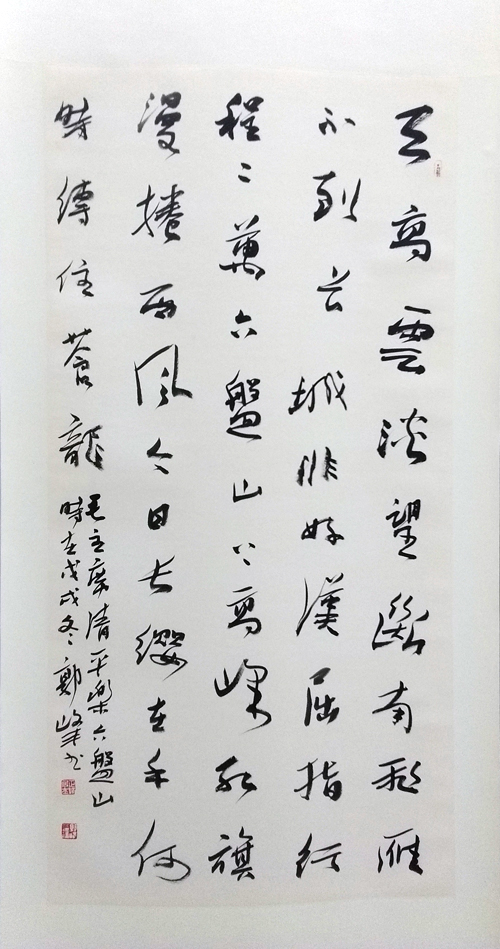 天高雲淡望斷南飛雁
不到長城非好漢屈指行
程二萬六盤山上高峰紅旗
漫捲西風今日長纓在手何
時縛住蒼龍
毛主席清平樂六盤山
時在戊戌冬鄭峰书